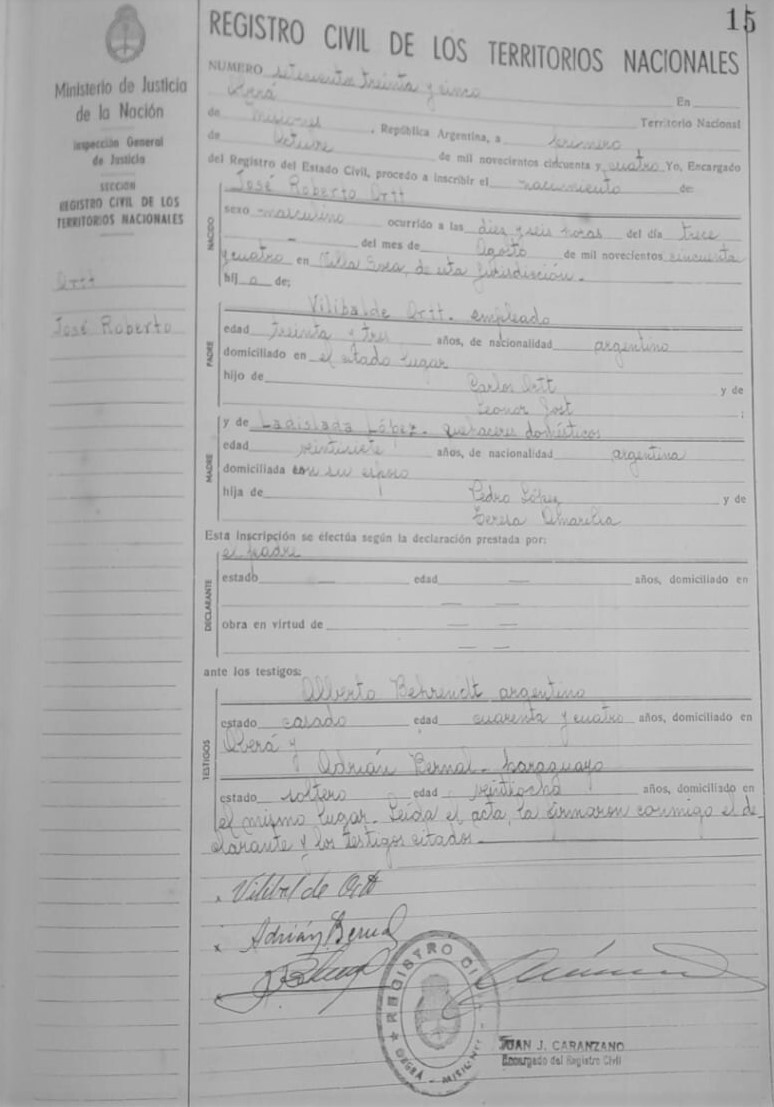 15
REGISTRO CIVIL DE LOS TERRITORIOS NACIONALES
Ministerio de Justicia
de la Nación
Inspección General
de Justicia
SECCION
REGISTRO CIVIL DE LOS
TERRITORIOS NACIONALES
Ortt
José Roberto
NUMERO setecientos treinta y cinco
Oberá En
de Misiones Territorio Nacional
, República Argentina, a primero
de Octubre de mil novecientos cincuenta y cuatro Yo, Encargado
del Registro del Estado Civil, procedo a inscribir el nacimiento de:
NACIDO
José Roberto Ortt
sexo masculino ocurrido a las diez y seis horas del día trece
del mes de Agosto de mil novecientos cincuenta
y cuatro en Villa de esta jurisdicción.-
hij o de:
PADRE
Vilibalde Ortt. empleado
edad treinta y tres años, de nacionalidad argentino
domiciliado en el citado lugar
hijo de Carlos Ortt y de
Leonor Jost ;
MADRE
y de Ladislada López- quehaceres domésticos
edad veintisiete años, de nacionalidad argentina
domiciliada con su esposo
hija de Pedro López y de
Teresa Amarilla
Esta inscripción se efectúa según la declaración prestada por:
DECLARANTE
el padre
estado — edad — años, domiciliado en
— —
obra en virtud de
— —
ante los testigos:
TESTIGOS
Alberto Behrendt argentino
estado casado edad cuarenta y cuatro años, domiciliado en
Oberá y
Adrián Bernal- paraguayo
estado soltero edad veintiocho años, domiciliado en
el mismo lugar- Leída el acta, la firmaron conmigo el de-
clarante y los testigos citados-
x Vilibalde Ortt
x Adrián Bernal
REGISTRO CIVIL
OBERÁ - MISIONES
JUAN J. CARANZANO
Encargado del Registro Civil